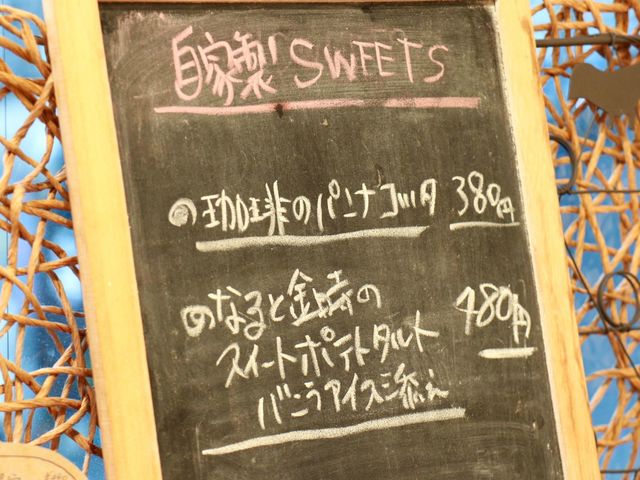 自家製 SWEETS
珈琲のパンナコッタ 380円
なると金時の 480円
スイートポテトタルト
バニラアイス添え